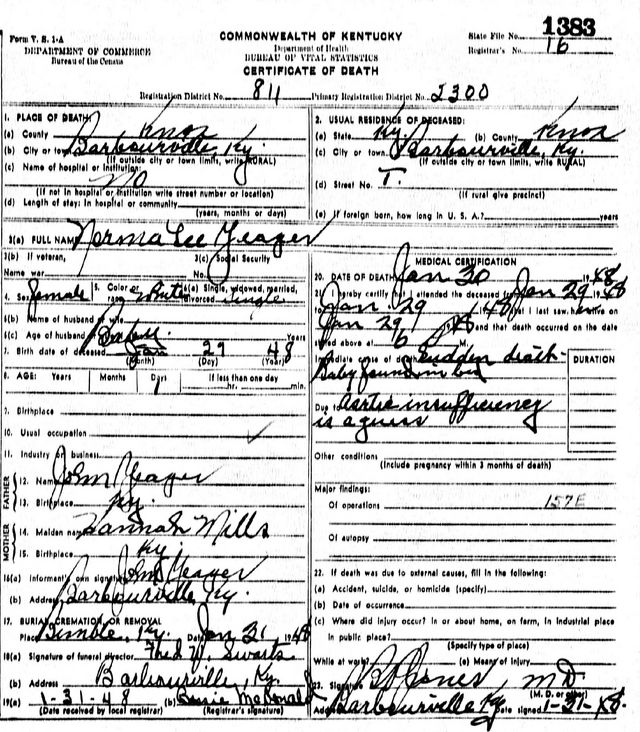 Form V. S. 1-A
DEPARTMENT OF COMMERCE
Bureau of the Census
COMMONWEALTH OF KENTUCKY
Department of Health
BUREAU OF VITAL STATISTICS
CERTIFICATE OF DEATH
State File No. 1383
Registrar's No. 16
Registration District No. 811 Primary Registration District No. 2300
1. PLACE OF DEATH:
(a) County Knox
(b) City or town Barbourville, Ky.
(If outside city or town limits, write RURAL)
(c) Name of hospital or institution:
No
(If not in hospital or institution write street number or location)
(d) Length of stay: In hospital or community
(years, months or days)
2. USUAL RESIDENCE OF DECEASED:
(a) State Ky. (b) County Knox
(c) City or town Barbourville, Ky.
(If outside city or town limits, write RURAL)
(d) Street No.
(If rural give precinct)
(e) If foreign born, how long in U. S. A.? years
3(a) FULL NAME Norma Lee Yeager
3(b) If veteran, 3(c) Social Security
Name war No.
4. Sex female 5. Color or race White 6(a) Single, widowed, married, divorced Single
6(b) Name of husband or wife
6(c) Age of husband or wife Years
7. Birth date of deceased Jan 29 48
(Month) (Day) (Year)
8. AGE: Years Months Days If less than one day
1 hr. min.
9. Birthplace
10. Usual occupation
11. Industry or business
FATHER
12. Name John Yeager
13. Birthplace Ky.
MOTHER
14. Maiden name Hannah Mills
15. Birthplace Ky
16(a) Informant's own signature John Yeager
(b) Address Barbourville, Ky.
17. BURIAL, CREMATION, OR REMOVAL
Place Bimble, Ky. Date Jan 31, 1948
18(a) Signature of funeral director Fred V. Swartz
(b) Address Barbourville, Ky.
19(a) 1-31-48 (b) McDonald
(Date received by local registrar) (Registrar's signature)
MEDICAL CERTIFICATION
20. DATE OF DEATH Jan 30 1948
21. I hereby certify that I attended the deceased from Jan 29 1948
to Jan 29 1948 that I last saw alive on
Jan 29 1948 and that death occurred on the date
stated above at 6 M.
Immediate cause of death Sudden death-
Baby found in bed
DURATION
Due to Aortic insufficiency
is a guess
Other conditions
(Include pregnancy within 3 months of death)
Major findings:
Of operations 157E
Of autopsy
22. If death was due to external causes, fill in the following:
(a) Accident, suicide, or homicide (specify)
(b) Date of occurrence
(c) Where did injury occur? In or about home, on farm, in industrial place
in public place?
(Specify type of place)
While at work? (e) Means of injury
23. Signature Jones M.D.
(M. D. or other)
Address Barbourville Ky Date signed 1-31-48.